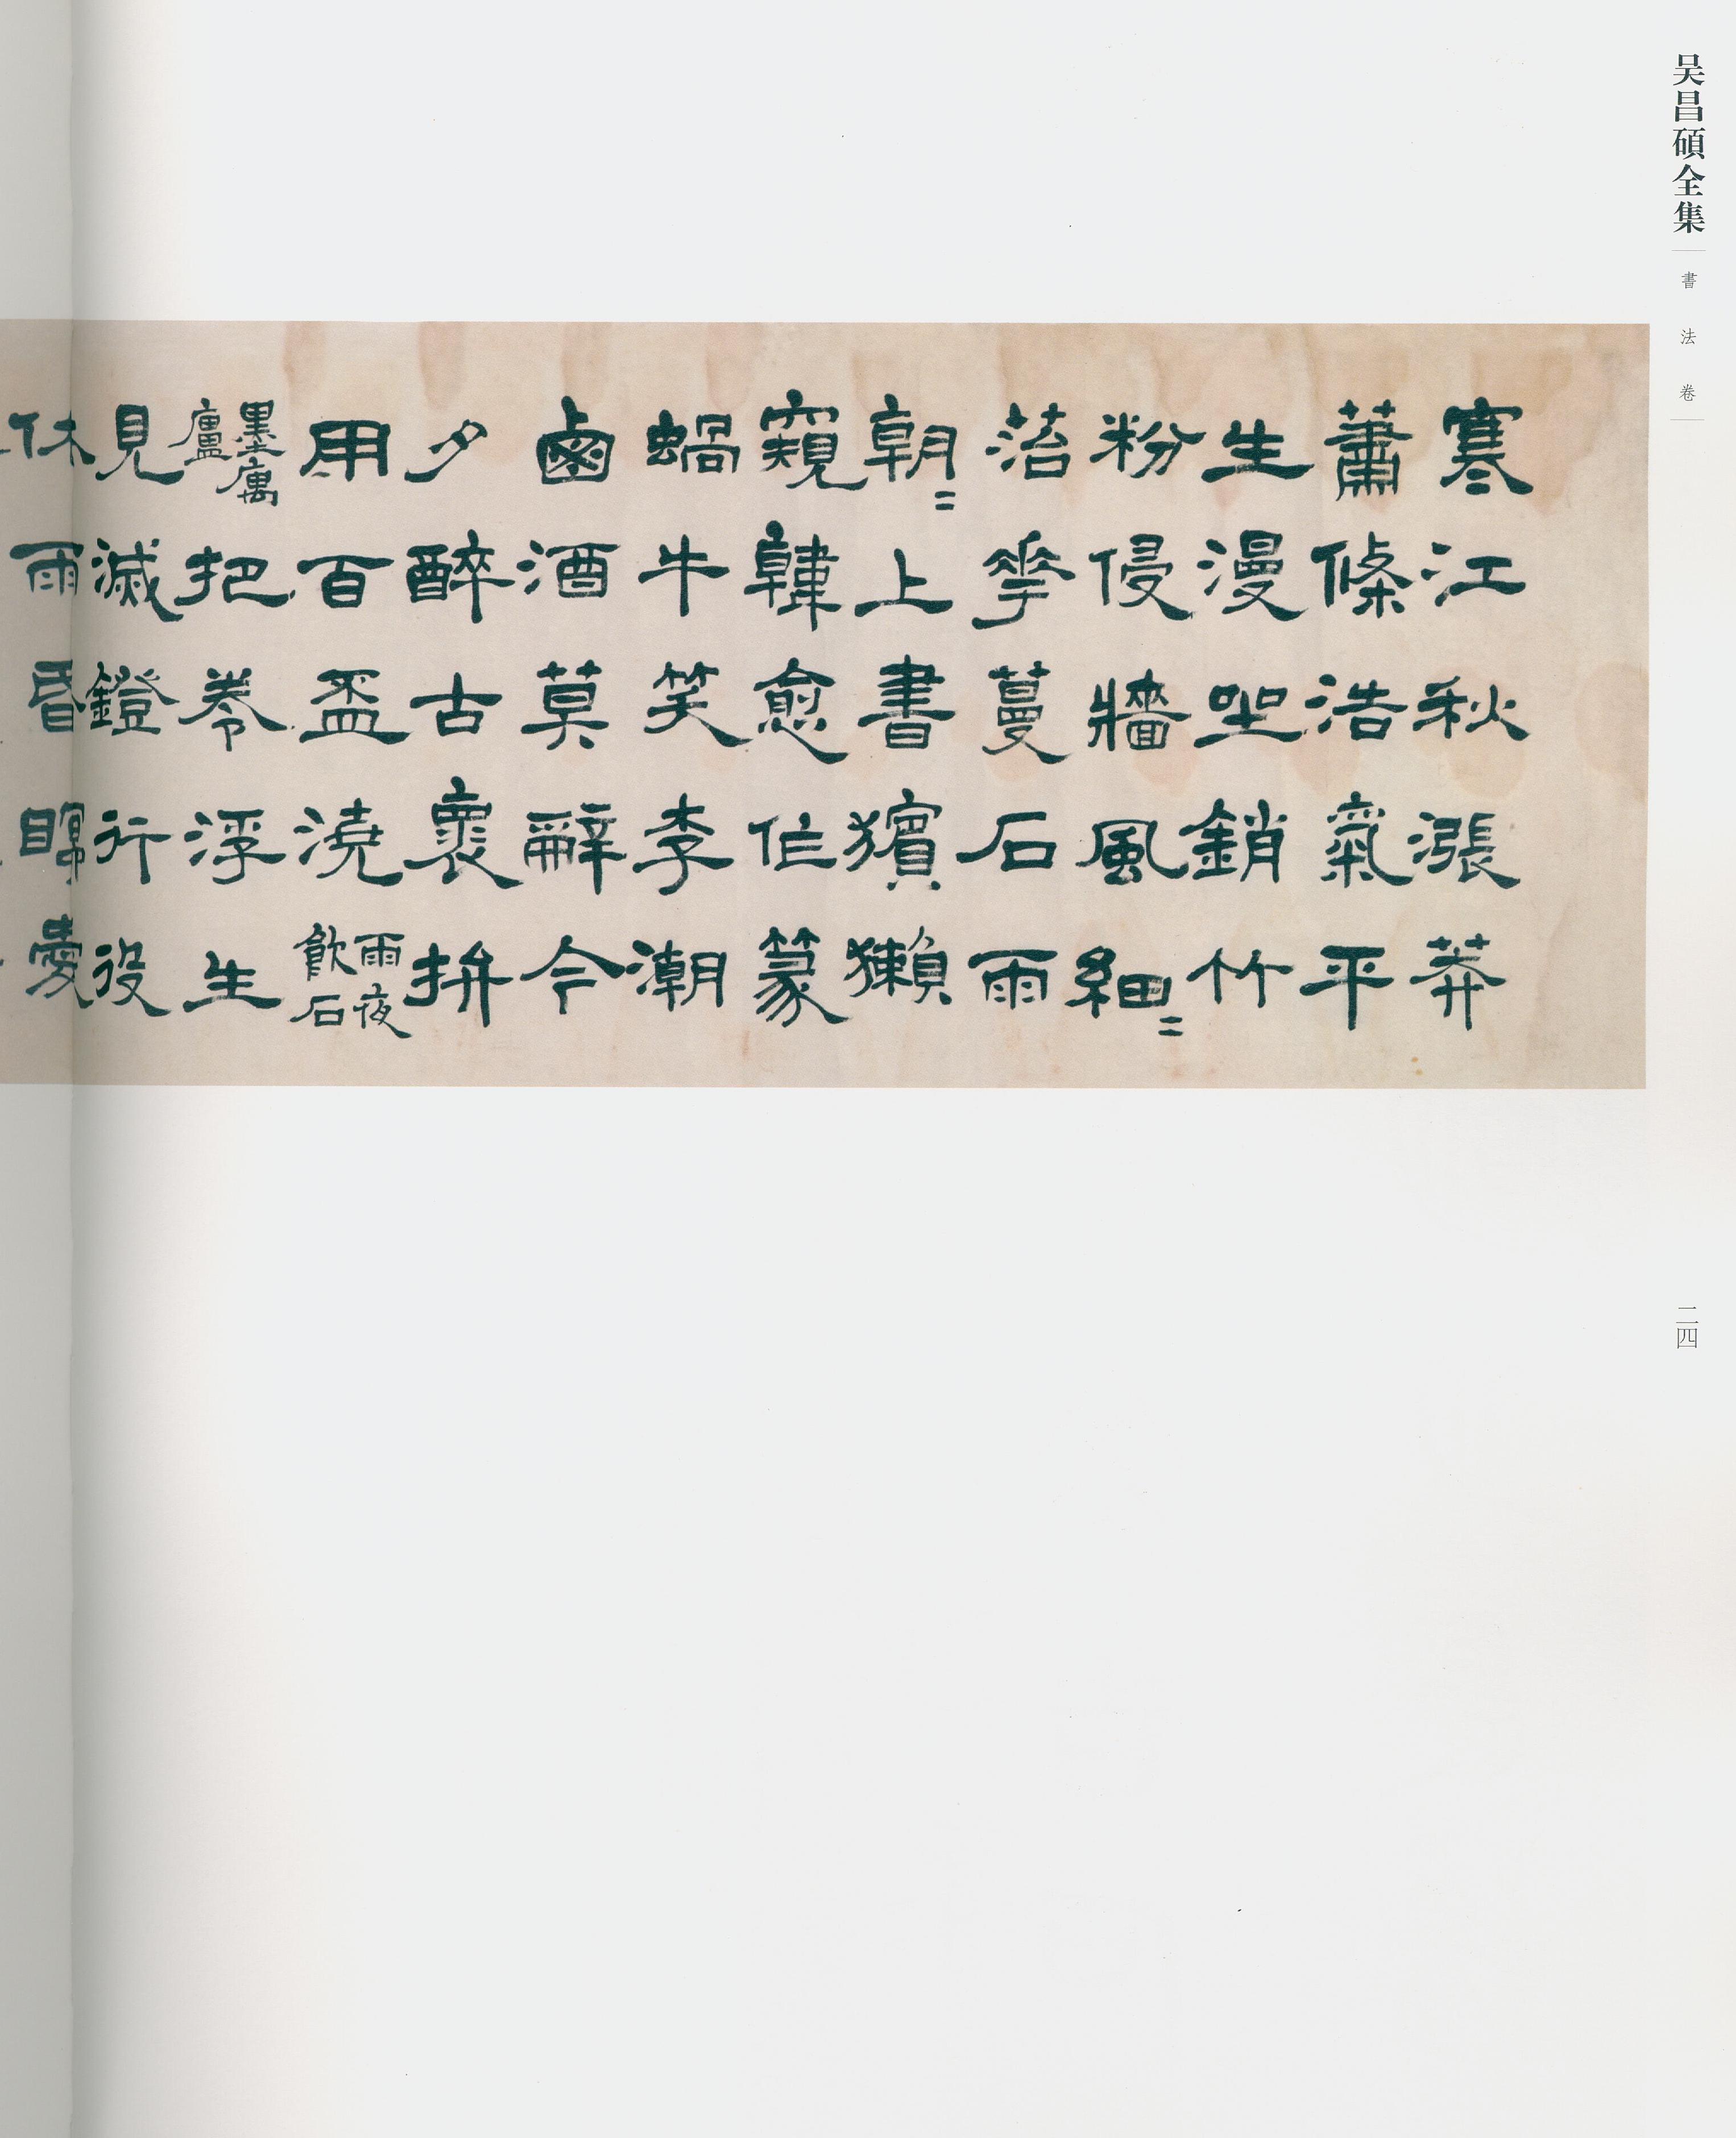 吴昌碩全集
書法卷
二四
寒江秋漲莽
蕭條浩氣平
生漫坐銷竹
粉侵牆風細〻
菭華蔓石雨
朝〻上書獱獺
窺韓愈作篆
蝸牛笑李潮
鹵酒莫辭今
夕醉古裹拚
用百盃澆雨夜飲石
墨廎廬把卷浮生
見滅鐙行役
休雨昏